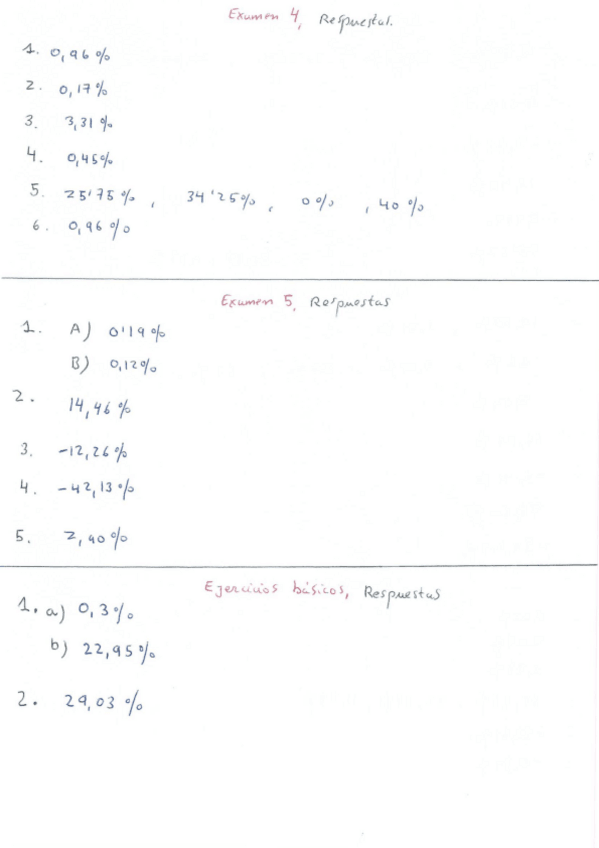 Examen 4, Respuestas.
1. 0,96%
2. 0,17%
3. 3,31%
4. 0,45%
5. 25'75%, 34'25%, 0%, 40%
6. 0,96%
Examen 5, Respuestas
1. A) 0'19%
B) 0,12%
2. 14,46%
3. -12,26%
4. -42,13%
5. 2,40%
Ejercicios básicos, Respuestas
1. a) 0,3%
b) 22,95%
2. 29,03%